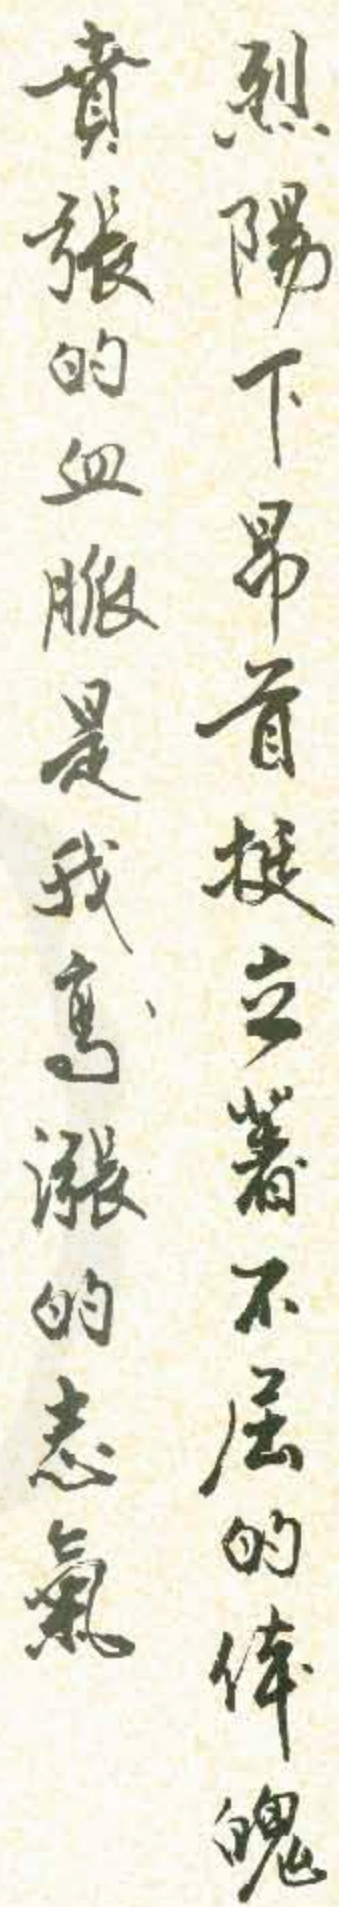 烈陽下昂首挺立著不屈的体魄
賁張的血脈是我高漲的志氣